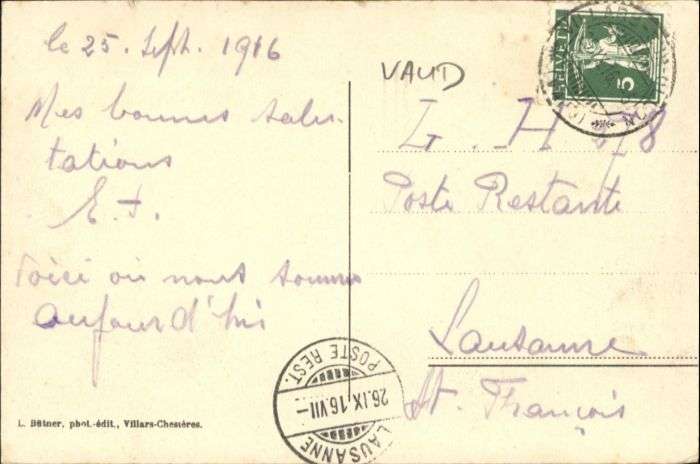 le 25. Sept. 1916
Mes bonnes salu-
tations
E. J.
Voici où nous sommes
aujourd'hui
L. Bütner, phot.-édit., Villars-Chesières.
VAUD
HELVETIA
5
L. H 678
Poste Restante
Lausanne
St. François
POSTE REST.
26.IX.16.VII-
LAUSANNE